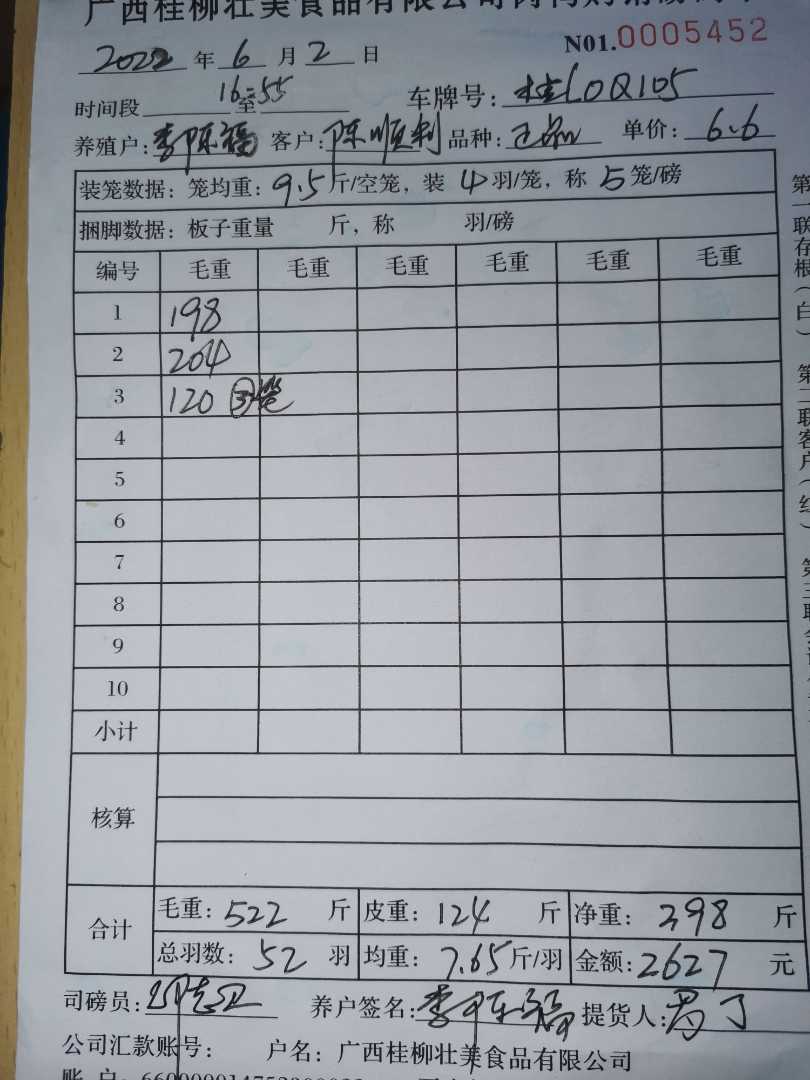 广西桂柳壮美食品有限公司
N01.0005452
2022年6月2日
时间段16至55 车牌号:桂L0Q105
养殖户:李陈福 客户:陈顺利 品种:土品 单价:6.6
装笼数据:笼均重:9.5斤/空笼,装4羽/笼,称5笼/磅
捆脚数据:板子重量 斤,称 羽/磅
编号 毛重 毛重 毛重 毛重 毛重 毛重
1 198
2 204
3 120 ③笼
4
5
6
7
8
9
10
小计
核算
合计 毛重:522斤 皮重:124斤 净重:398斤
总羽数:52羽 均重:7.65斤/羽 金额:2627元
司磅员: 养户签名:李陈福 提货人:
公司汇款账号: 户名:广西桂柳壮美食品有限公司
第一联存根(白) 第二联客户(红) 第三联